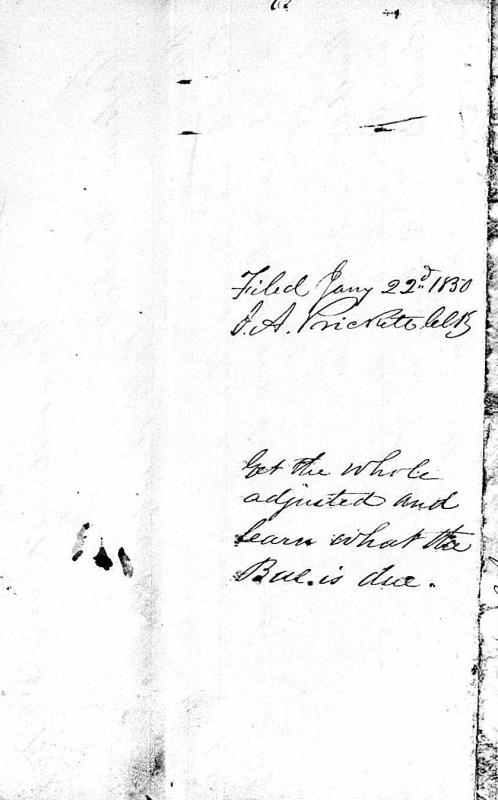 Filed Jany 22d 1850
J. A. Prickett Clk
Get the whole
adjusted and
learn what the
Bal. is due.